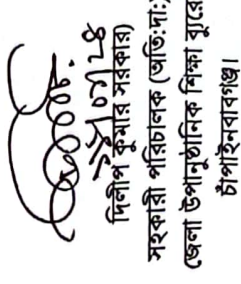 (দিলীপ কুমার সরকার)
সহকারী পরিচালক (অতি:দা:)
জেলা উপানুষ্ঠানিক শিক্ষা ব্যুরো
চাঁপাইনবাবগঞ্জ।